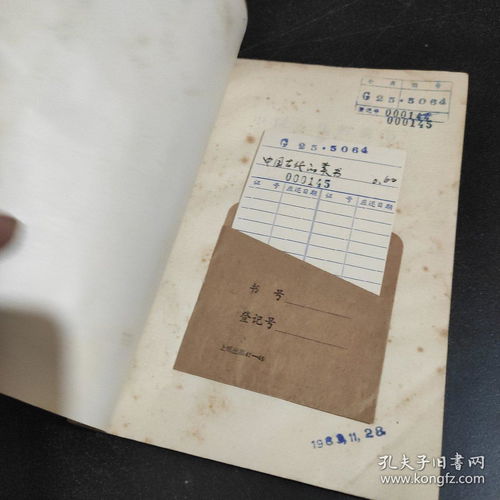 G 25·5064
登记号 000145
000145
G 25·5064
中国古代的类书
000145 0.60
证 号 应还日期 证 号 应还日期
书 号
登记号
1983,11,28
孔夫子旧书网
www.kongfz.com